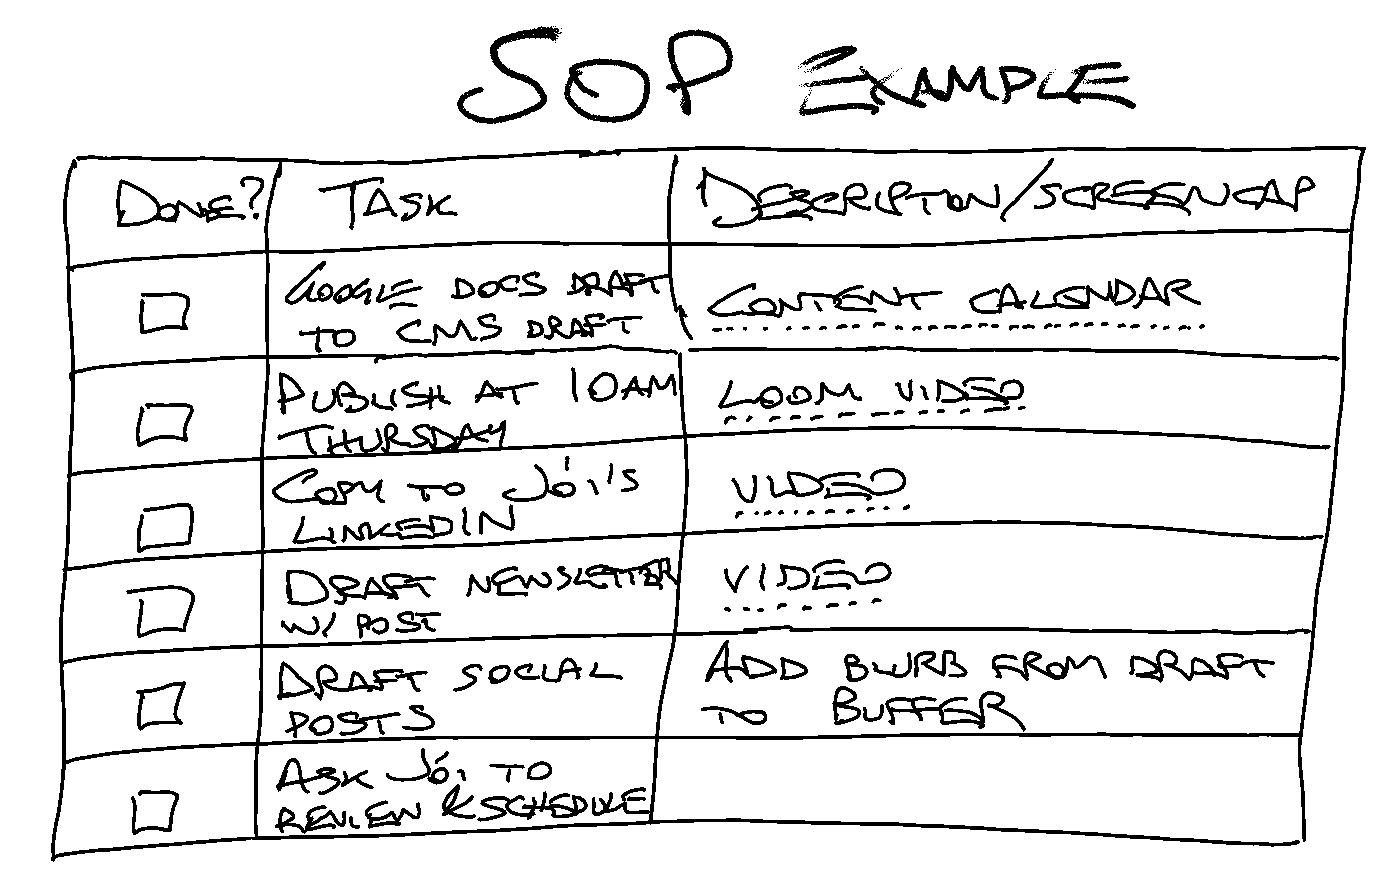 SOP EXAMPLE
DONE? TASK DESCRIPTION/SCREENCAP
GOOGLE DOCS DRAFT
TO CMS DRAFT
CONTENT CALENDAR
PUBLISH AT 10AM
THURSDAY
LOOM VIDEO
COPY TO JÓI'S
LINKEDIN
VIDEO
DRAFT NEWSLETTER
W/ POST
VIDEO
DRAFT SOCIAL
POSTS
ADD BLURB FROM DRAFT
TO BUFFER
ASK JÓI TO
REVIEW & SCHEDULE